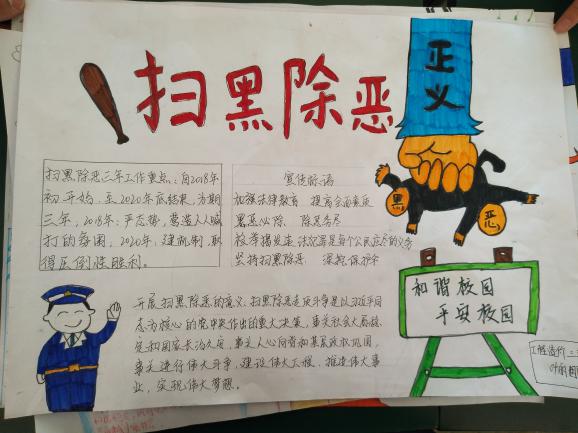 扫黑除恶
正义
扫黑除恶三年工作重点:自2018年
初开始,至2020年底结束,为期
三年,2018年:严态势,营造人人喊
打的氛围,2020年,建机制,取
得压倒性胜利。
宣传标语
加强法律教育 提高全面素质
黑恶必除 除恶务尽
检举揭发违法犯罪是每个公民应尽的义务
坚持扫黑除恶
黑
恶
和谐校园
平安校园
开展扫黑除恶的意义:扫黑除恶专项斗争是以习近平同
志为核心的党中央作出的重大决策,事关社会大局稳
定和国家长治久安,事关人心向背和基层政权巩固,
事关进行伟大斗争,建设伟大工程、推进伟大事
业,实现伟大梦想。
工程造价